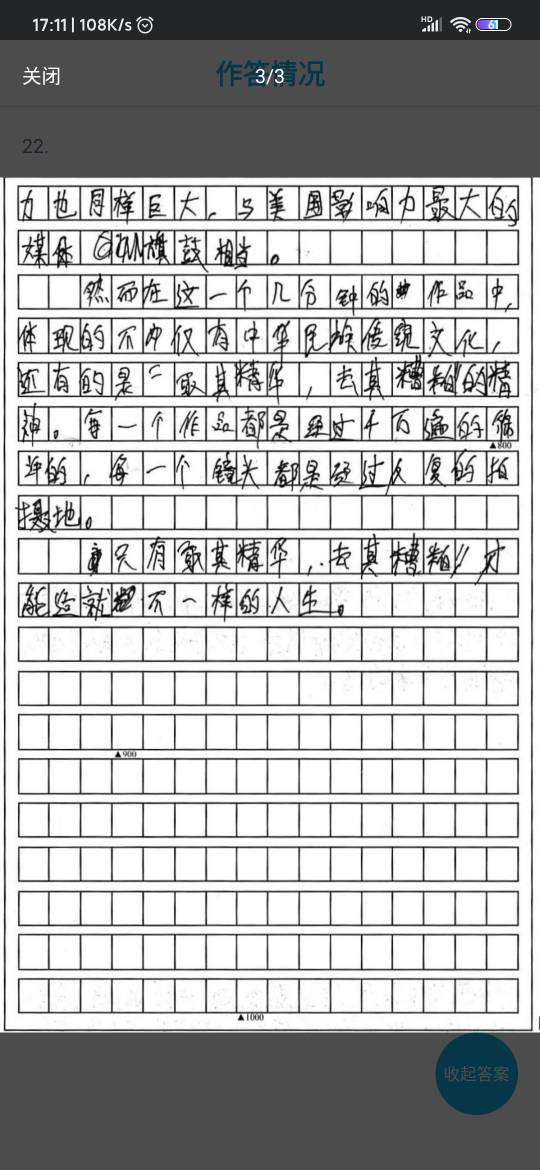 17:11 | 108K/s
HD
61
关闭
作答情况
3/3
22.
力也同样巨大,与美国影响力最大的
媒体 CNN旗鼓相当。
然而在这一个几分钟的作品中,
体现的不仅有中华民族传统文化,
还有的是“取其精华,去其糟粕”的精
神。每一个作品都是经过千万遍的
▲800
的,每一个镜头都是经过反复的拍
摄地。
只有取其精华,去其糟粕”才
能造就不一样的人生。
▲900
▲1000
收起答案